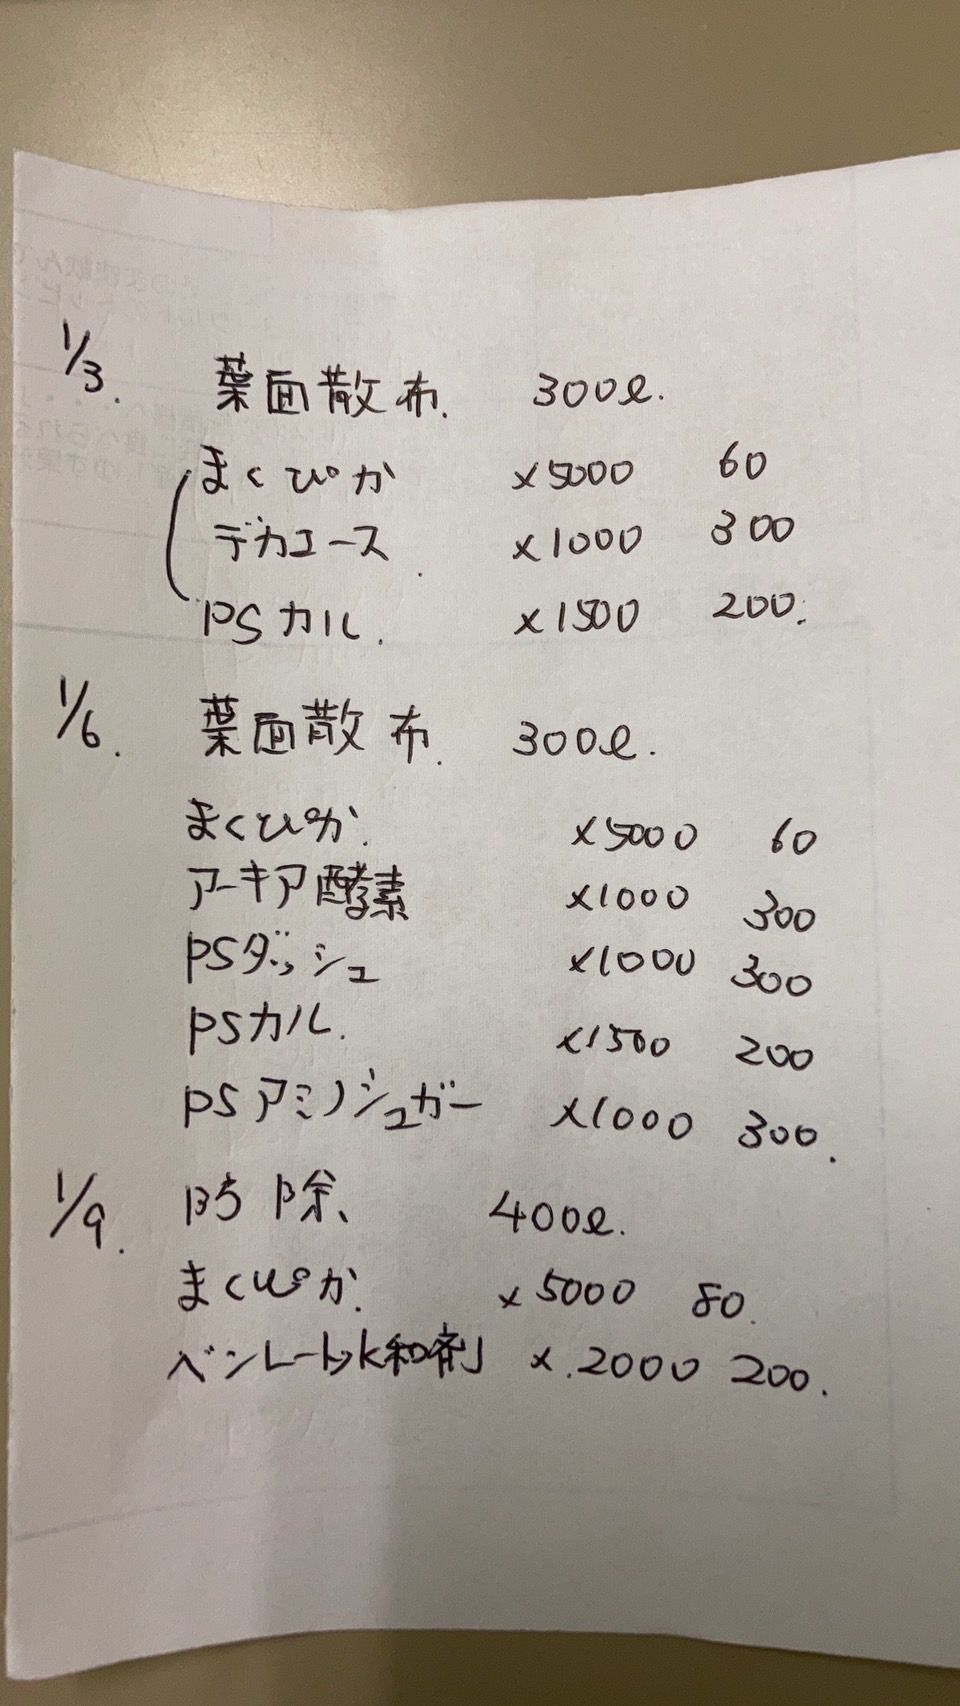 1/3. 葉面散布. 300ℓ.
まくぴか ×5000 60
デカエース ×1000 300
PSカル. ×1500 200.
1/6. 葉面散布. 300ℓ.
まくぴか. ×5000 60
アーキア酵素 ×1000 300
PSダッシュ ×1000 300
PSカル. ×1500 200
PSアミノシュガー ×1000 300.
1/9. 防除 400ℓ.
まくぴか. ×5000 80.
ベンレート水和剤 ×.2000 200.